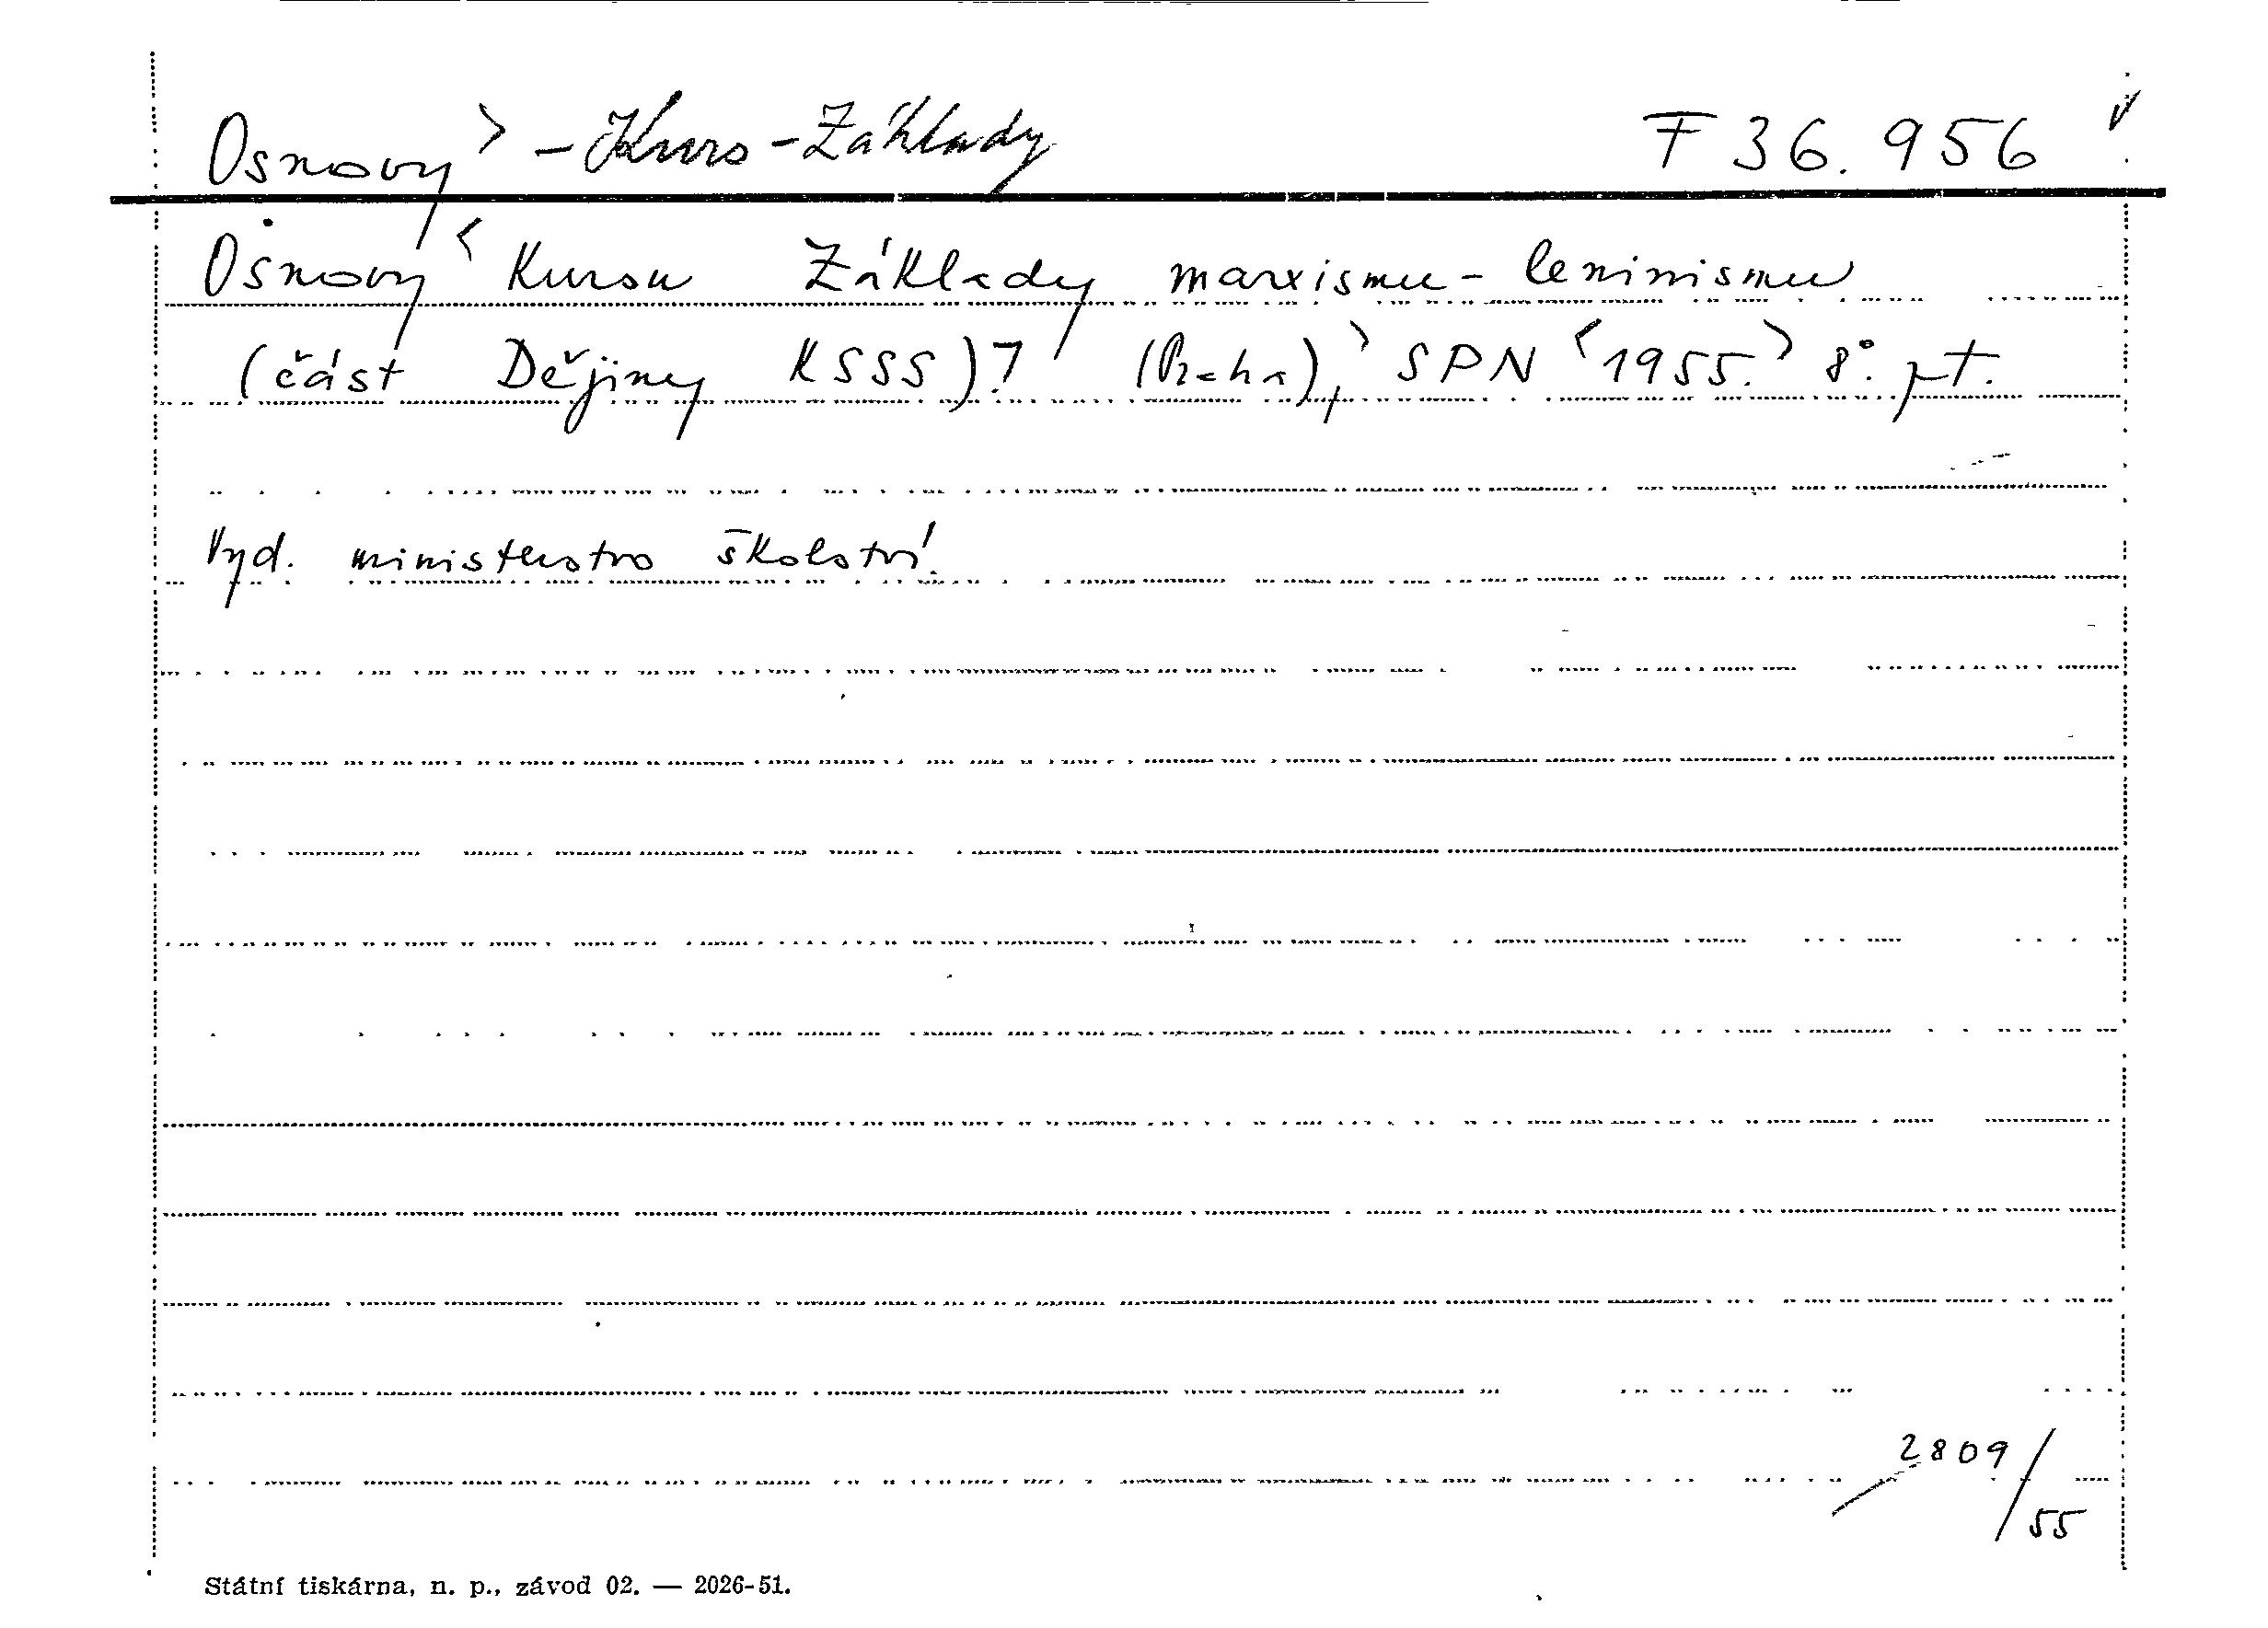 Osnovy> - Kurs - Základy F 36.956
Osnovy< kursu Základy marxismu-leninismu
(část Dějiny KSSS).7 (Praha),> SPN <1955.> 8°. pt.
Vyd. ministerstvo školství.
2809/55
Státní tiskárna, n. p., závod 02. — 2026-51.